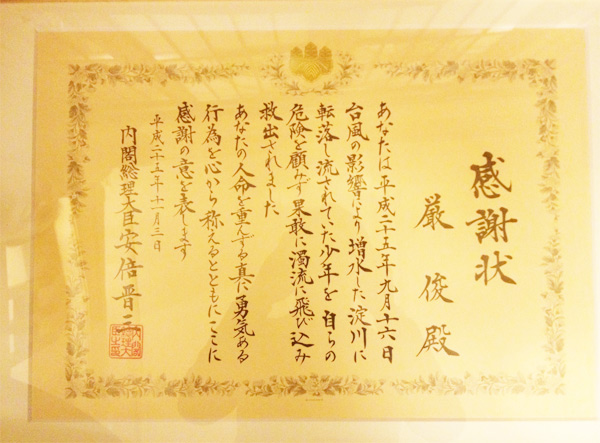 感謝状
厳俊殿
あなたは平成二十五年九月十六日
台風の影響により増水した淀川に
転落し流されていた少年を自らの
危険を顧みず果敢に濁流に飛び込み
救出されました
あなたの人命を重んずる真に勇気ある
行為を心から称えるとともにここに
感謝の意を表します
平成二十五年十一月三日
内閣総理大臣安倍晋三